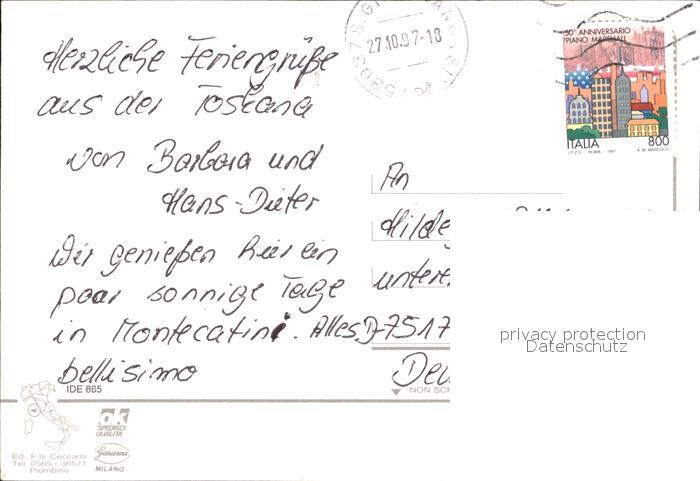 Herzliche Feriengrüße
aus der Toskana
von Barbara und
Hans-Dieter
Wir genießen hier ein
paar sonnige Tage
in Montecatini. Alles
bellisimo
27.10.97-18
50° ANNIVERSARIO
PIANO MARSHALL
ITALIA 800
I.P.Z.S. ROMA 1997
An
Hilde
untere
D-7517
Deu
NON SC
privacy protection
Datenschutz
IDE 865
ok
SPEDISCI
QUALITA'
Garami
MILANO
Ed. F.lli Ceccanti
Tel. 0565 - 36571
Piombino